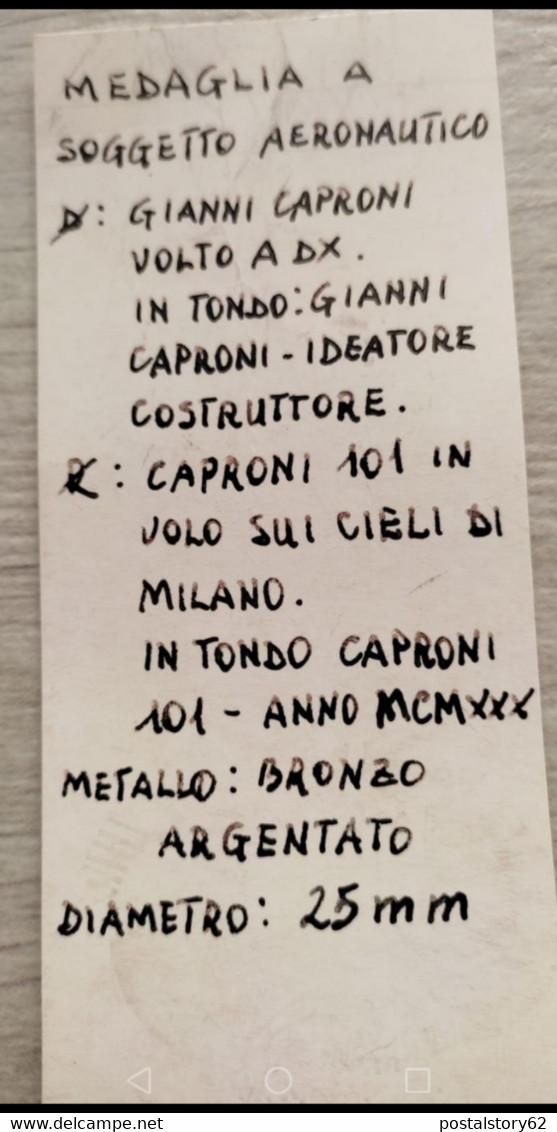 MEDAGLIA A
SOGGETTO AERONAUTICO
D: GIANNI CAPRONI
VOLTO A DX.
IN TONDO: GIANNI
CAPRONI - IDEATORE
COSTRUTTORE.
R: CAPRONI 101 IN
VOLO SUI CIELI DI
MILANO.
IN TONDO CAPRONI
101 - ANNO MCMXXX
METALLO: BRONZO
ARGENTATO
DIAMETRO: 25 mm
www.delcampe.net postalstory62